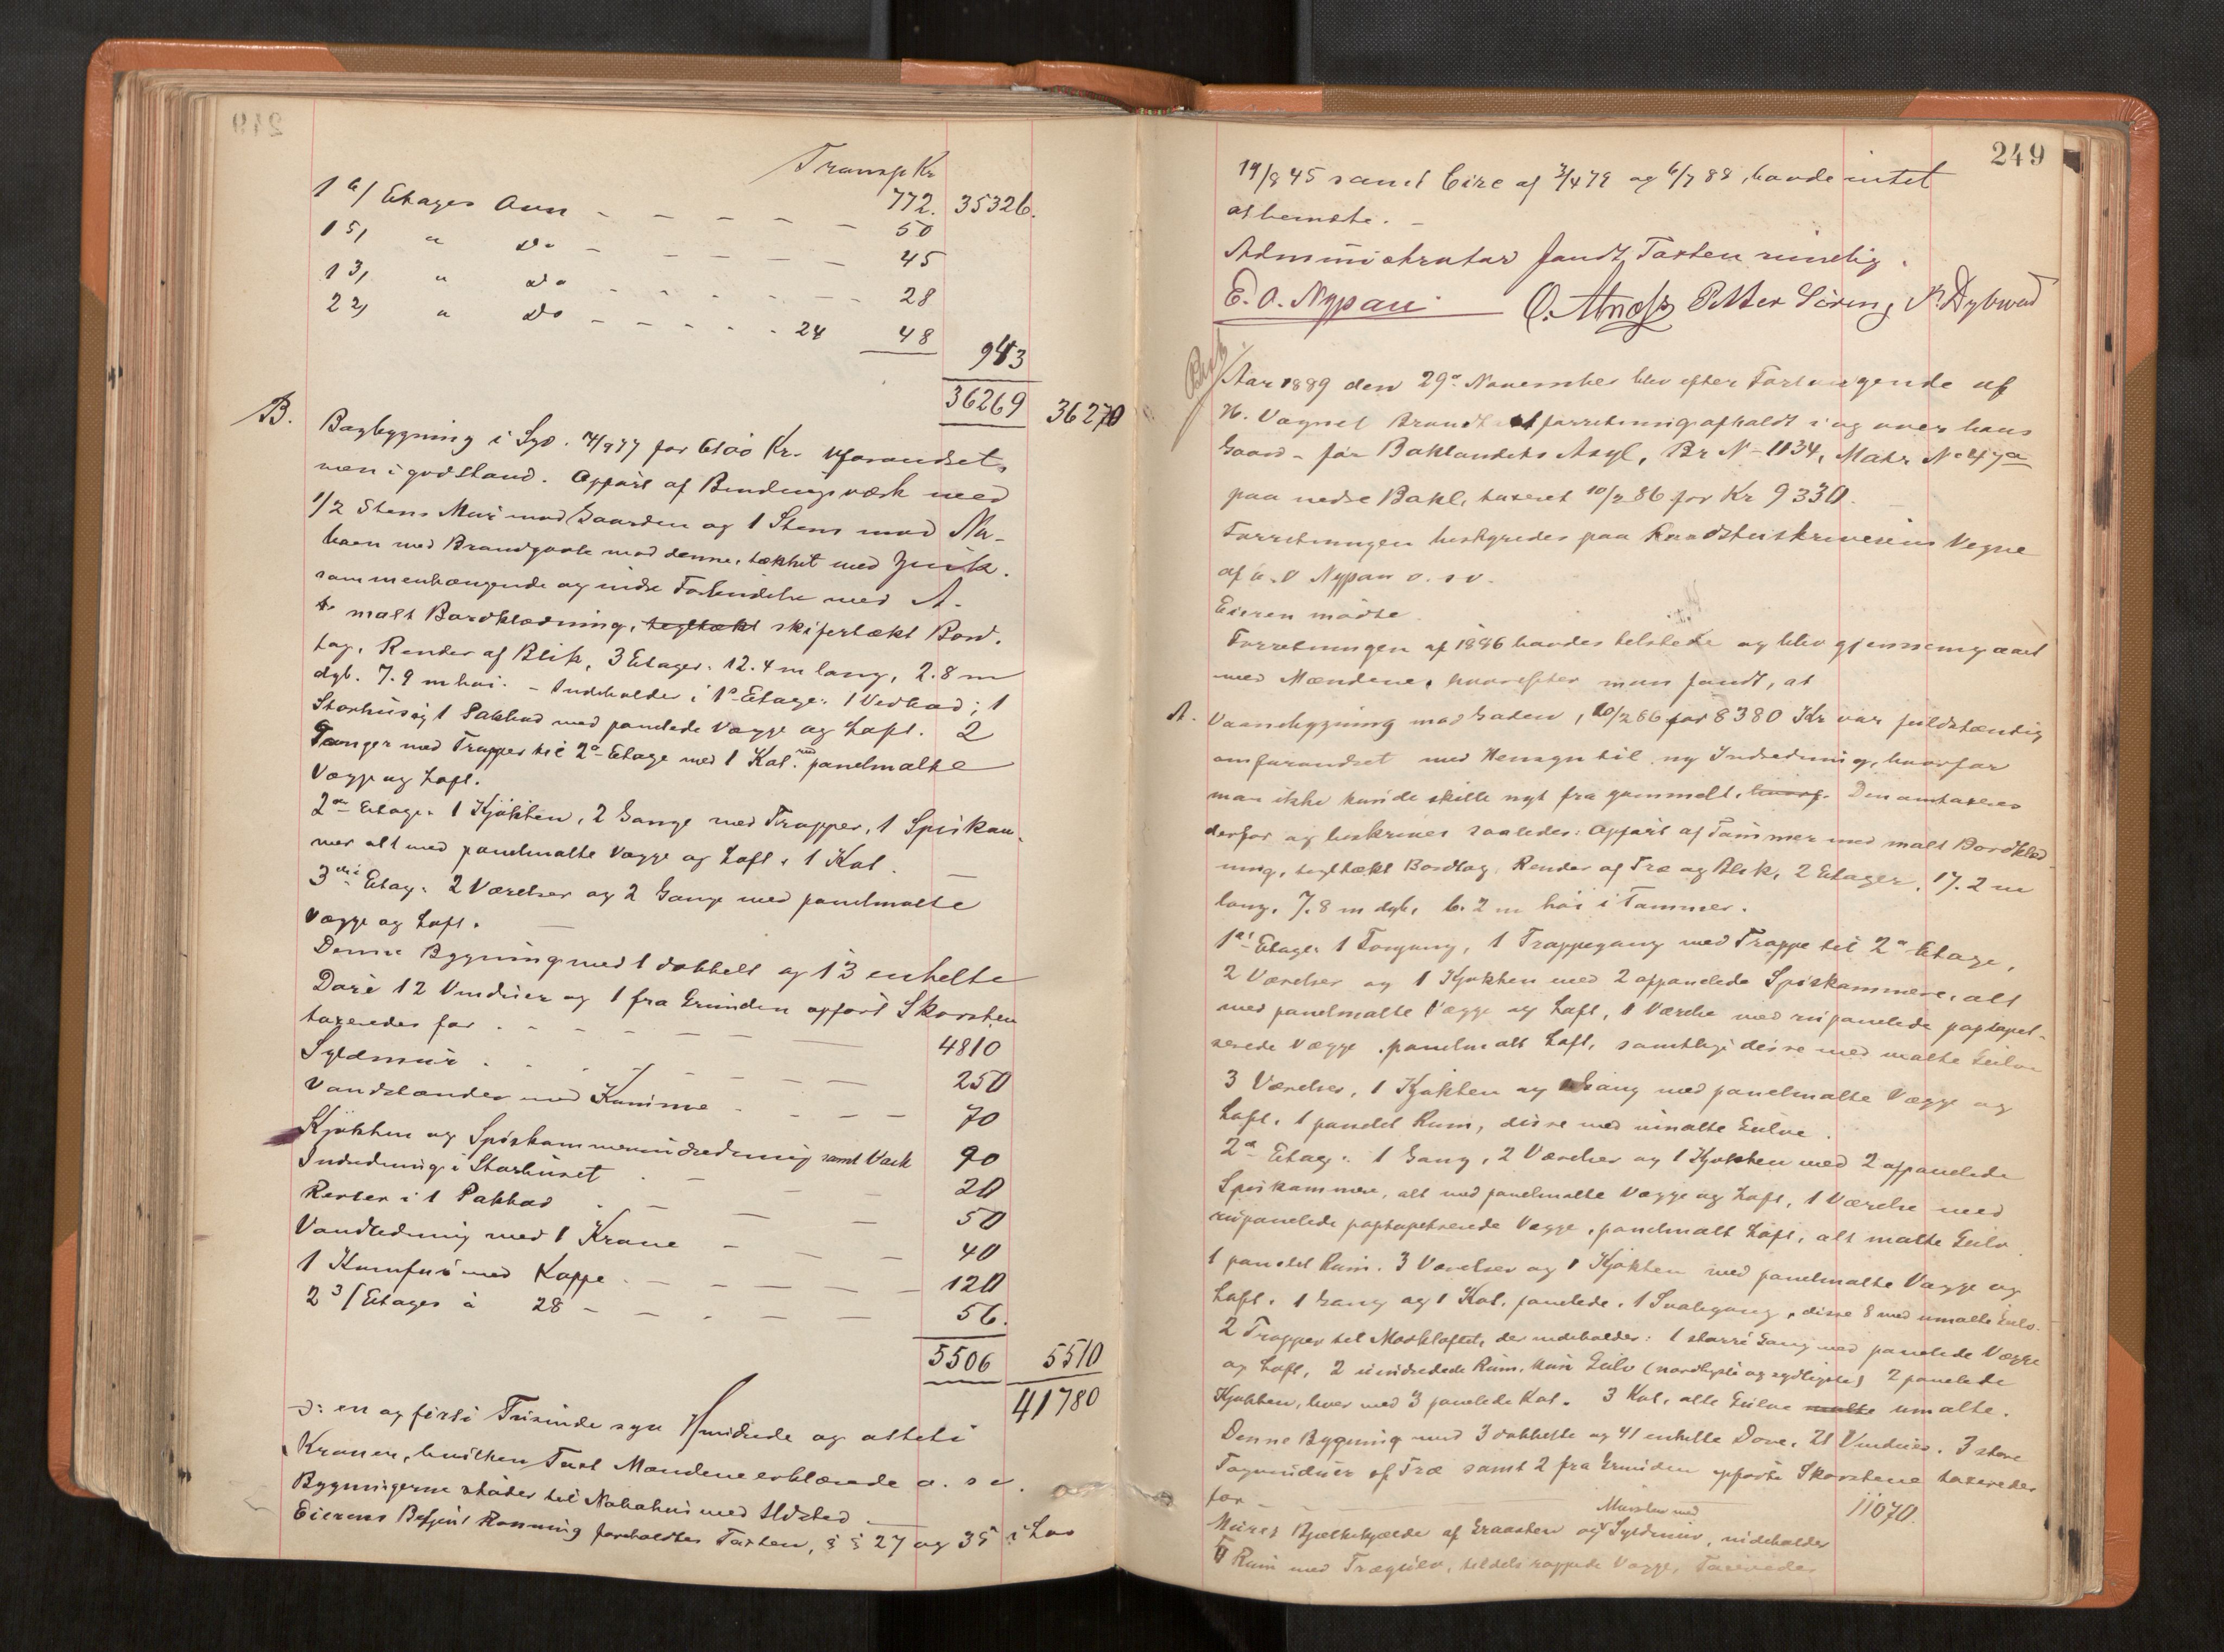 Transp Kr 772. 35326.
1 6/ Etages Ovn - - - - - 50
1 5/ " Do - - - - - 45
1 3/ " Do - - - - - 28
2 2/ " Do - - - - 24 48
943
36269 36270
B. Bagbygning i Syd. for 6100 Kr. uforandret,
men i god Stand. Opført af Bindingsværk med
1/2 Stens Mur mod Gaarden og 1 Stens mod Na-
boen med Brandgavle mod denne, tækket med Zink.
sammenhængende og indre Forbindelse med A.
malt Bordklædning, tegltækt skifertækt Bord-
tag, Render af Blik, 3 Etager. 12.4 m lang, 2.8 m
dyb. 7.9 m høi. - Indeholder i 1ste Etage: 1 Vedbod; 1
Storhus og 1 Pakbod med panelede Vægge og Loft. 2
Gange med Trapper til 2den Etage med 1 Kot. med panelmalte
Vægge og Loft.
2den Etage: 1 Kjøkken, 2 Gange med Trapper, 1 Spiskam-
mer alt med panelmalte Vægge og Loft. 1 Kot.
3die Etag: 2 Værelser og 2 Gange med panelmalte
Vægge og Loft.
Denne Bygning med 1 dobbelt og 13 enkelte
Døre 12 Vinduer og 1 fra Grunden opført Skorsten
taxeredes for - - - - 4810
Syldmur - - - - 250
Vandstænder med Kumme - - - 70
Kjøkken og Spiskammerindredning samt Vask 90
Indredning i Storhuset - - - 20
Render i 1 Pakbod - - - 50
Vandledning med 1 Krane - - - 40
1 Komfur med Kappe - - - - 120
2 3/ Etages à 28 - - - - 56.
5506 5510
41780
ɔ: en og firti Tusinde syv Hundrede og otteti
Kroner, hvilken Taxt Mændene erklærede o. s. v.
Bygningerne støder til Nabohus med Ildsted
Eierens Rønning foreholdtes Taxten, § § 27 og 35 i Lov
249
19/8 45 samt Circ af 3/4 79 og 6/7 88, havde intet
at bemærke. -
Administrator fandt Taxten rimelig.
E. O. Nypan O. Petter Søren, Dybwad
Aar 1889 den 29de November blev efter Forlangende af
H. Vognet Brandt forretning afholdt i og over hans
Gaard - før Baklandets Asyl, Br N- 1134, Matr No 47a
paa nedre Bakl. taxeret 10/2 86 for Kr 9330.
Forretningen bestyredes paa Raadstuskriverens Vegne
af E. O Nypan o. s v.
Eieren mødte
Forretningen af 1886 havdes tilstede og blev gjennemgaaet
med Mændene, hvorefter man fandt, at
A. Vaanebygning mod Gaden, 10/2 86 for 8380 Kr var fuldstændig
omforandret med Hensyn til ny Indredning, hvorfor
man ikke kunde skille nyt fra gammelt. Den omtaxeres
derfor og beskrives saaledes: Opført af Tømmer med malt Bordklæd
ning, tegltækt Bordtag, Render af Træ og Blik, 2 Etager, 17.2 m
lang, 7.8 m dyb, 6.2 m høi i Tømmer.
1ste Etage: 1 Forgang, 1 Trappegang med Trappe til 2den Etage,
2 Værelser og 1 Kjøkken med 2 afpanelede Spiskammere, alt
med panelmalte Vægge og Loft, 1 Værelse med rupanelede paptapet-
serede Vægge. panelmalt Loft, samtlige disse med malte Gulve
3 Værelser, 1 Kjøkken og Gang med panelmalte Vægge og
Loft, 1 panelet Rum, disse med umalte Gulve.
2den Etag: 1 Gang, 2 Værelser og 1 Kjøkken med 2 afpanelede
Spiskammere, alt med panelmalte Vægge og Loft, 1 Værelse med
rupanelede paptapetserede Vægge, panelmalt Loft, alt malte Gulv.
1 panelet Rum. 3 Værelser og 1 Kjøkken med panelmalte Vægge og
Loft. 1 Gang og 1 Kot. panelede. 1 Svalegang, disse 8 med umalte Gulv.
2 Trapper til Mørkloftet, der indeholder: 1 større Gang med panelede Vægge
og Loft, 2 uindredede Rum, kun Gulv (nordligste og sydligste) 2 panelede
Kjøkken, hver med 3 panelede Kot. 3 Kot, alle Gulve malte umalte.
Denne Bygning med 3 dobbelte og 41 enkelte Døre, 21 Vinduer. 3 store
Tagvinduer af Træ samt 2 fra Grunden opførte Skorstene taxeredes
for - 11070.
Muret Bjelkekjælder af Graasten og Syldmur, indeholder
Rum med Trægulv, tildels rappede Vægge, Taxeredes